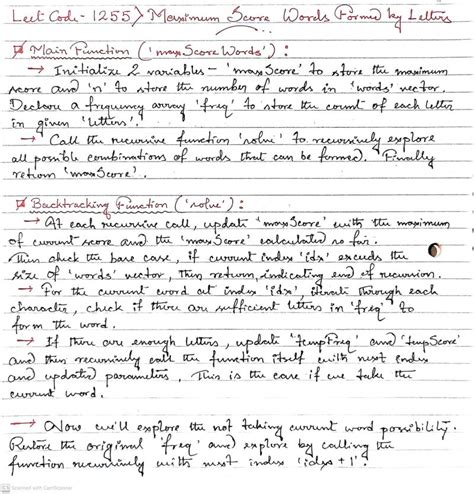 Leet Code - 1255 > Maximum Score Words Formed by Letters
Main Function ('maxScoreWords') :
→ Initialize 2 variables - 'maxScore' to store the maximum
score and 'n' to store the number of words in 'words' vector.
Declare a frequency array 'freq' to store the count of each letter
in given 'letters'.
→ Call the recursive function 'solve' to recursively explore
all possible combinations of words that can be formed. Finally
return 'maxScore'.
Backtracking Function ('solve') :
→ At each recursive call, update 'maxScore' with the maximum
of current score and the 'maxScore' calculated so far.
Then check the base case, if current index 'idx' exceeds the
size of 'words' vector, then return, indicating end of recursion.
→ For the current word at index 'idx', iterate through each
character, check if there are sufficient letters in 'freq' to
form the word.
→ If there are enough letters, update 'tempFreq' and 'tempScore'
and then recursively call the function itself with next index
and updated parameters, This is the case if we take the
current word.
→ Now we'll explore the not taking current word possibility.
Restore the original 'freq' and explore by calling the
function recursively with next index 'idx + 1'.
CS Scanned with CamScanner